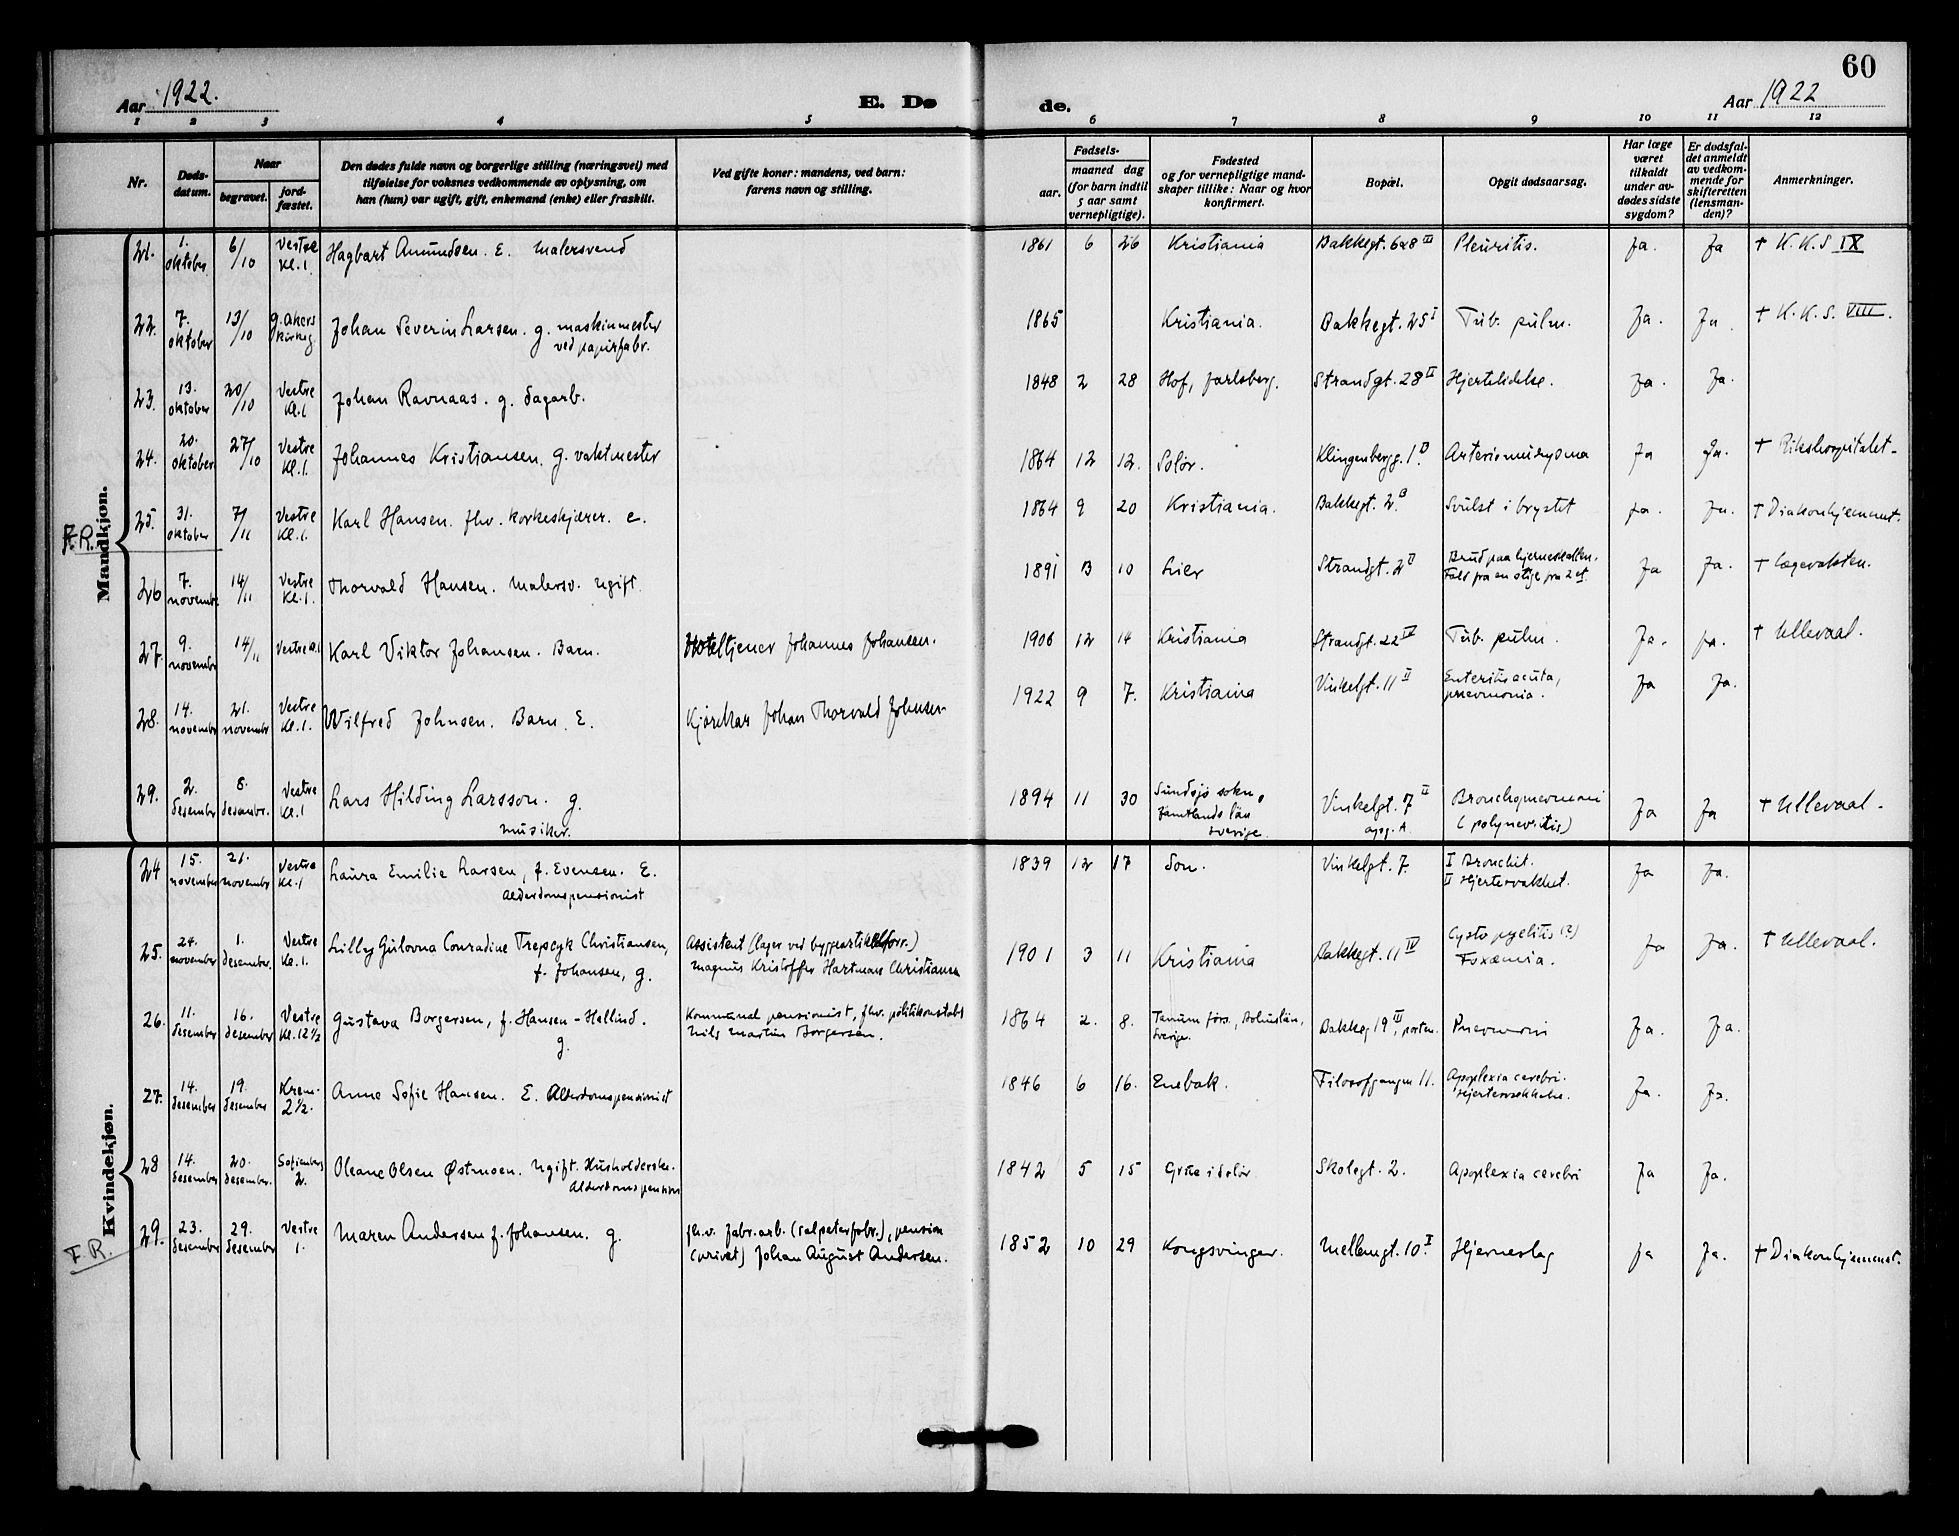 60
Aar 1922.
E. Dø
de.
Aar 1922
1 2 3 4 5 6 7 8 9 10 11 12
Nr.
Døds-
datum.
Naar
begravet.
jord-
fæstet.
Den dødes fulde navn og borgerlige stilling (næringsvei) med
tilføielse for voksnes vedkommende av oplysning, om
han (hun) var ugift, gift, enkemand (enke) eller fraskilt.
Ved gifte koner: mandens, ved barn:
farens navn og stilling.
Fødsels-
aar.
maaned dag
(for barn indtil
5 aar samt
vernepligtige).
Fødested
og for vernepligtige mand-
skaper tillike: Naar og hvor
konfirmert.
Bopæl.
Opgit dødsaarsag.
Har læge
været
tilkaldt
under av-
dødes sidste
sygdom?
Er dødsfal-
det anmeldt
av vedkom-
mende for
skifteretten
(lensman-
den)?
Anmerkninger.
Mandkjøn.
21. 1. oktober 6/10 Vestre Kl. 1. Hagbart Amundsen. E. Malersvend 1861 6 26 Kristiania Bakkegt. 6&8 III Pleuritis. Ja. Ja † K.K.S IX
22. 7. oktober 13/10 g. akers kirkeg. Johan Severin Larsen. g. maskinmester
ved papirfabr.
1865 Kristiania. Bakkegt. 25 I Tub. pulm. Ja. Ja. † K.K.S. VIII.
23. 13. oktober 20/10 Vestre Kl. 1 Johan Ravnaas. g. Sagarb. 1848 2 28 Hof, Jarlsberg. Strandgt. 28 II Hjertelidelse. Ja. Ja.
24. 20. oktober 27/10 Vestre Kl. 1. Johannes Kristiansen. g. vaktmester 1864 12 12. Solør. Klingenbergg. 1. Ja Ja. † Rikshospitalet.
F.R.
25. 31. oktober 7/11 Vestre Kl. 1. Karl Hansen. fhv. korkeskjærer. e. 1864 9 20 Kristiania. Bakkegt. 2 B Svulst i brystet Ja. Ja. † Diakonhjemmet.
26 7. novembr 14/11 Vestre Kl. 1. Thorvald Hansen. Malersv. ugift. 1891 10 Lier Strandgt. 2 Brud paa hjerneskallen.
Fald fra en stige fra 2 et.
Ja Ja. † Lægevakten.
27. 9. november 14/11 Vestre Kl. 1 Karl Viktor Johansen. Barn. Hoteltjener Johannes Johansen. 1906 12 14 Kristiania Strandgt. 22 IV Tub. pulm. Ja. Ja. † Ullevaal.
28. 14. november 21. novembr Vestre Kl. 1. Wilfred Johnsen. Barn. E. Kjørekar Johan Thorvald Johnsen. 1922 9 7. Kristiania Vinkelgt. 11 II Enteritis acuta,
pneumonia.
Ja Ja.
29. 2. desember 8. desember. Vestre Kl. 1 Lars Hilding Larsson. g.
musiker.
1894 11 30 Sundsjø sokn,
Jämtlands län
Sverige.
Vinkelgt. 7 II
opg. A.
Bronchopneumoni
(polynevritis)
Ja Ja † Ullevaal.
Kvindekjøn.
24 15. november 21. novembr Vestre Kl. 1 Laura Emilie Larsen, f. Evensen. E.
Alderdomspensionist
1839 12 17 Son. Vinkelgt. 7. I Bronchit.
II Hjertesvakhet.
Ja Ja.
25. 24. november 1. desember. Vestre Kl. 1. Lilly Gulovna Conradine Christiansen,
f. Johansen, g.
Assistent (lager ved byggeartikelforr.)
Magnus Kristoffer Hartman Christiansen
1901 3 11 Kristiania Bakkegt. 11 IV Cysto pyelitis (?)
Toxæmia.
Ja Ja. † Ullevaal.
26. 11. desember 16. desember Vestre Kl. 12 1/2 Gustava Borgersen, f. Hansen-Hellind.
g.
Kommunal pensionist, fhv. politikonstabel
Nils Martin Borgersen.
1864 2. 8. Tanum förs., Bohuslän,
Sverige.
Bakkeg 19 III, porten. Pneumoni Ja. Ja.
27. 14. desember 19. desember Krem. 2 1/2. Anne Sofie Hansen. E. Alderdomspensionist 1846 6 16. Enebak. Filosofgangen 11. Apoplexia cerebri.
Hjertesvækkelse.
Ja. Ja.
28 14. desember 20. desember. Sofienberg 2. Oleane Olsen Østmoen. ugift. Husholderske.
Alderdomspension
1842 5 15 Grue i Solør Skolegt. 2. Apoplexia cerebri Ja Ja.
F.R.
29. 23. desember 29. desember Vestre 1. Maren Andersen f. Johansen. g. fh.v. fabr.arb. (salpeterfabr.), pension
(privat) Johan August Andersen.
1852 10 29 Kongsvinger. Mellemgt. 10 I Hjerneslag Ja Ja. † Diakonhjemmet.